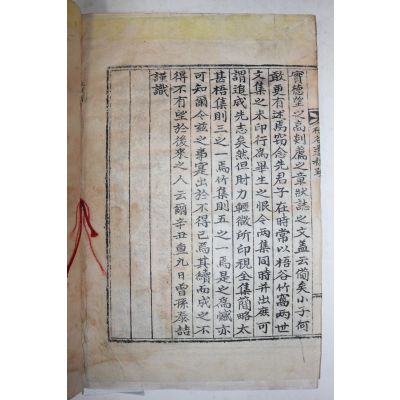 實德望之高剡薦之章狀誌之文盖云備矣小子何
敢更有述焉窃念先君子在時常以梧谷竹窩两世
文集之未印行爲畢生之恨今两集同時并出庶可
謂追成先志矣然但財力輕微所印視全集簡略太
甚梧集則三之一焉竹集則五之一焉是之爲憾亦
可知爾今兹之弟寔出於不得已焉其續而成之不
得不有望於後來之人云爾辛丑重九日曾孫泰喆
謹識